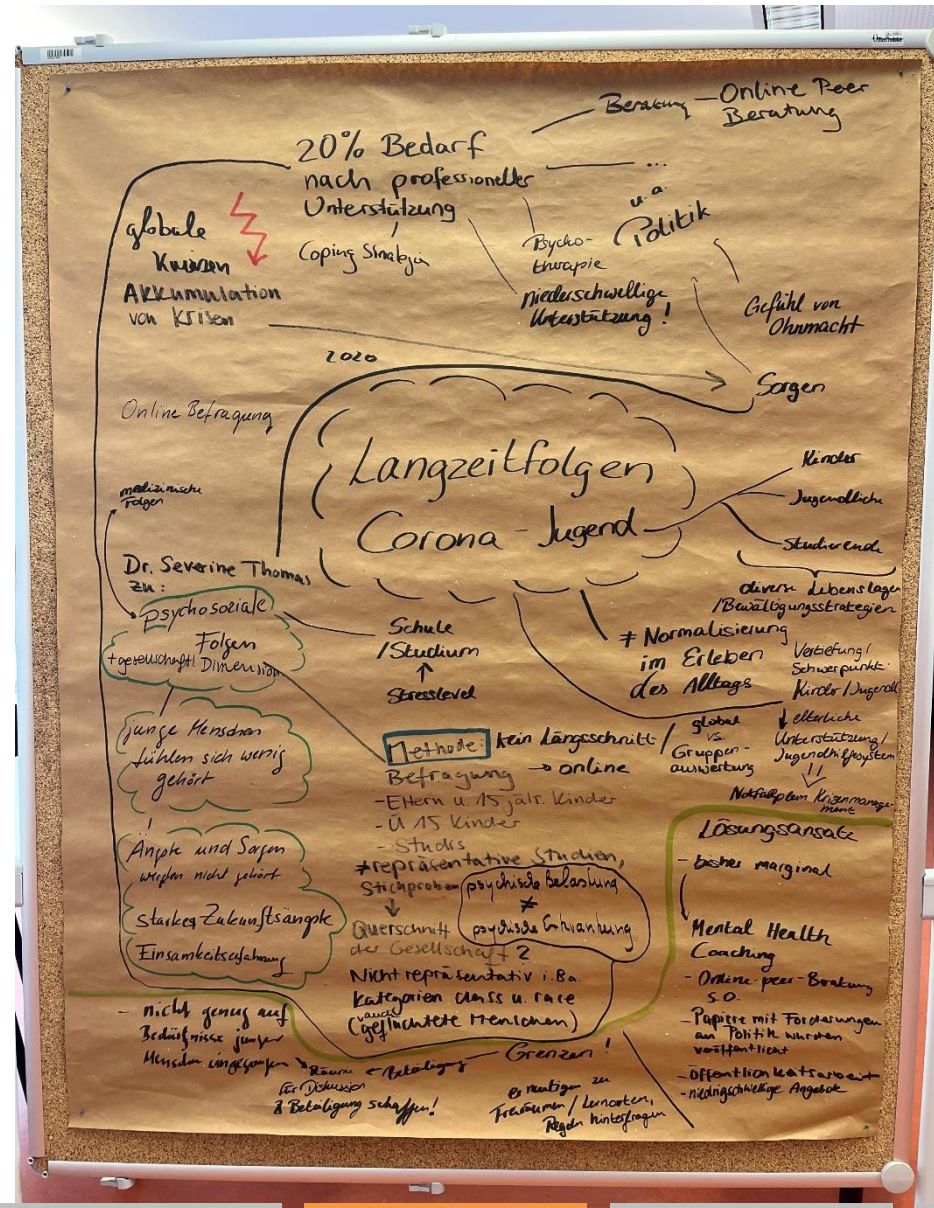 Beratung – Online Peer
Beratung
20% Bedarf
nach professioneller
Unterstützung
...
u. a.
Politik
Psycho-
therapie
niederschwellige
Unterstützung!
Gefühl von
Ohnmacht
Sorgen
globale
Krisen
Akkumulation
von Krisen
Coping
2020
Online Befragung
Langzeitfolgen
Corona - Jugend
Kinder
Jugendliche
Studierende
diverse Lebenslagen
/Bewältigungsstrategien
medizinische
Folgen
Dr. Severine Thomas
zu:
psychosoziale
Folgen
+ gesellschaftl. Dimension
Schule
/Studium
↑
Stresslevel
≠ Normalisierung
im Erleben
des Alltags
Vertiefung/
Schwerpunkt:
Kinder/Jugendl
↓ elterliche
Unterstützung/
Jugendhilfesystem
!!
Notfallplan Krisenmanage-
ment
junge Menschen
fühlen sich wenig
gehört
Ängste und Sorgen
werden nicht gehört
starke Zukunftsängste
Einsamkeitserfahrung
Methode: kein Längsschnitt/
→ online
global
vs.
Gruppen-
auswertung
Befragung
- Eltern u. 15 jähr. Kinder
- Ü 15 Kinder
- Studis
≠ repräsentative Studien,
Stichproben
↓
Querschnitt
der Gesellschaft?
psychische Belastung
≠
psychische Erkrankung
Nicht repräsentativ i.Ba.
Kategorien class u. race
(auch
geflüchtete Menschen)
Lösungsansatz
- bisher marginal
Mental Health
Coaching
- Online-peer-Beratung
s.o.
- Papiere mit Forderungen
an Politik wurden
veröffentlicht
- Öffentlichkeitsarbeit
- niedrigschwellige Angebote
- nicht genug auf
Bedürfnisse junger
Menschen eingegangen
Räume ← Beteiligung – Grenzen!
für Diskussion
& Beteiligung schaffen!
ermutigen zu
Freiräumen / Lernorten,
Regeln hinterfragen